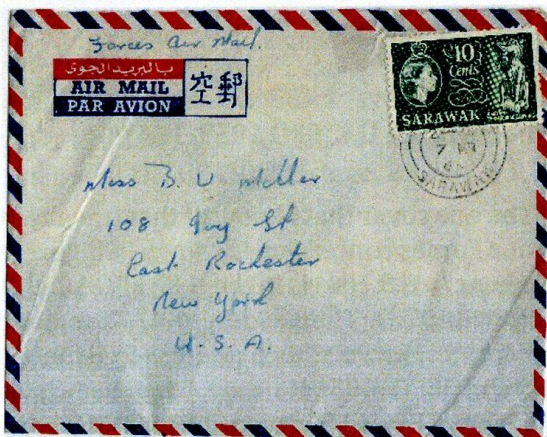 Forces Air Mail.
بالبريد الجوى
AIR MAIL
PAR AVION
空郵
10
Cents
SARAWAK
7
SARAWAK
Miss B. U Miller
108 Ivy St
East Rochester
New York
U. S. A.